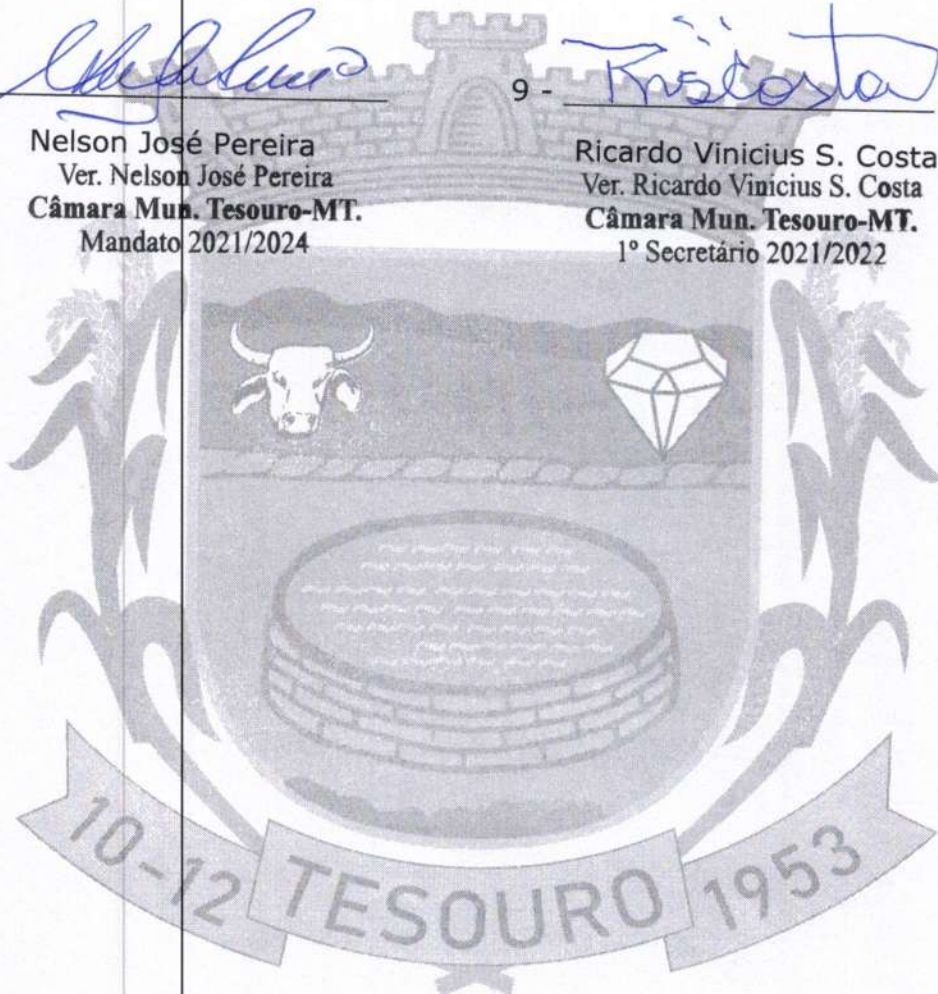 9 -
Nelson José Pereira
Ver. Nelson José Pereira
Câmara Mun. Tesouro-MT.
Mandato 2021/2024
Ricardo Vinicius S. Costa
Ver. Ricardo Vinicius S. Costa
Câmara Mun. Tesouro-MT.
1º Secretário 2021/2022
10-12 TESOURO 1953